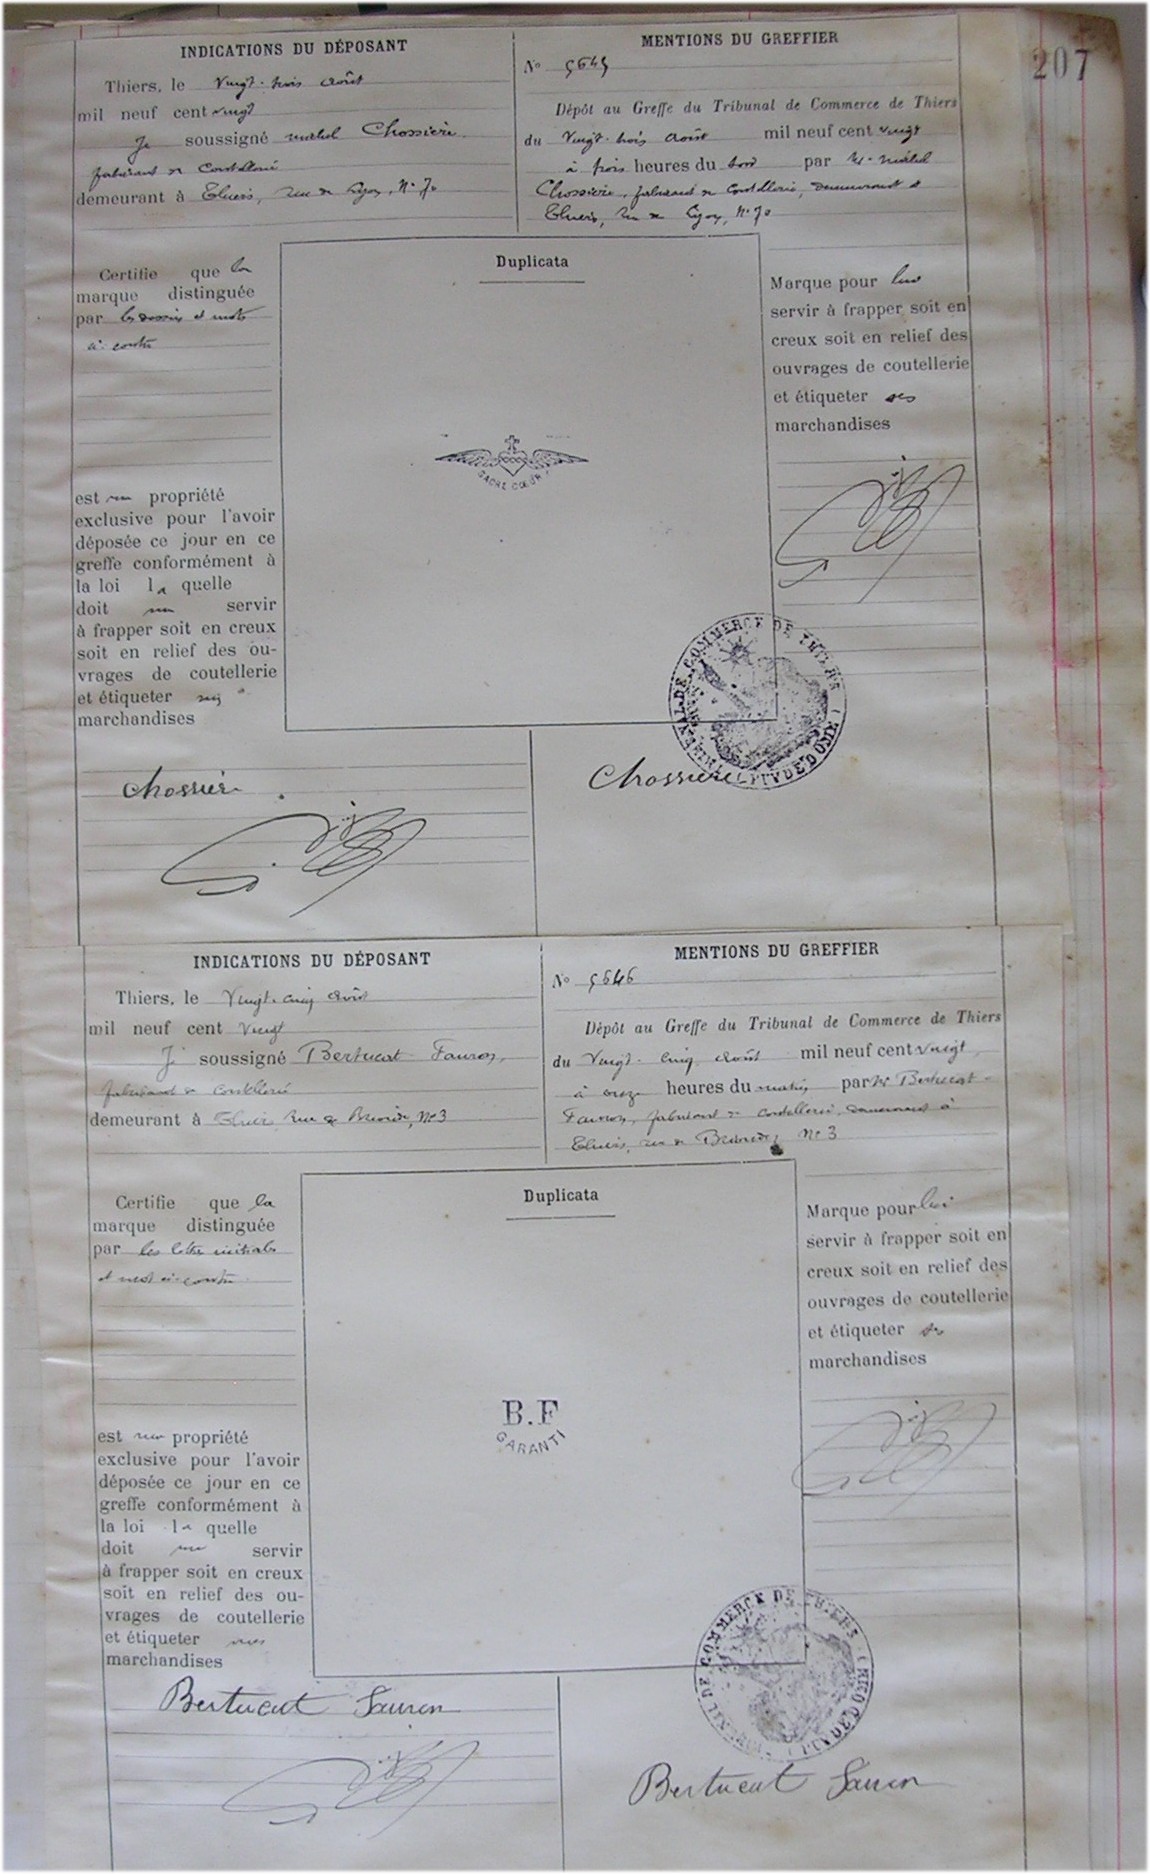 207
INDICATIONS DU DÉPOSANT
Thiers, le vingt-trois août
mil neuf cent vingt
Je soussigné Chossière
fabricant de Coutellerie
demeurant à Thiers, rue de Lyon, N° 70
MENTIONS DU GREFFIER
N° 5645
Dépôt au Greffe du Tribunal de Commerce de Thiers
du vingt-trois août mil neuf cent vingt
à trois heures du soir par Mr
Chossière, fabricant de Coutellerie, demeurant à
Thiers, rue de Lyon, N° 70
Certifie que la
marque distinguée
par les dessin et mots
ci-contre
est ma propriété
exclusive pour l'avoir
déposée ce jour en ce
greffe conformément à
la loi la quelle
doit me servir
à frapper soit en creux
soit en relief des ou-
vrages de coutellerie
et étiqueter mes
marchandises
Duplicata
SACRÉ CŒUR
Marque pour lui
servir à frapper soit en
creux soit en relief des
ouvrages de coutellerie
et étiqueter ses
marchandises
TRIBUNAL DE COMMERCE DE THIERS (PUY DE DOME)
Chossière
Chossière
INDICATIONS DU DÉPOSANT
Thiers, le Vingt-cinq août
mil neuf cent vingt
Je soussigné Bertucat-Fauron,
fabricant de Coutellerie
demeurant à Thiers, rue de N° 3
MENTIONS DU GREFFIER
N° 5646
Dépôt au Greffe du Tribunal de Commerce de Thiers
du Vingt-cinq août mil neuf cent vingt
à onze heures du matin, par Mr Bertucat-
Fauron, fabricant de Coutellerie, demeurant à
Thiers, rue de N° 3
Certifie que la
marque distinguée
par les lettres initiales
et mot ci-contre
est ma propriété
exclusive pour l'avoir
déposée ce jour en ce
greffe conformément à
la loi la quelle
doit me servir
à frapper soit en creux
soit en relief des ou-
vrages de coutellerie
et étiqueter mes
marchandises
Duplicata
B.F
GARANTI
Marque pour lui
servir à frapper soit en
creux soit en relief des
ouvrages de coutellerie
et étiqueter ses
marchandises
TRIBUNAL DE COMMERCE DE THIERS (PUY DE DOME)
Bertucat Fauron
Bertucat Fauron